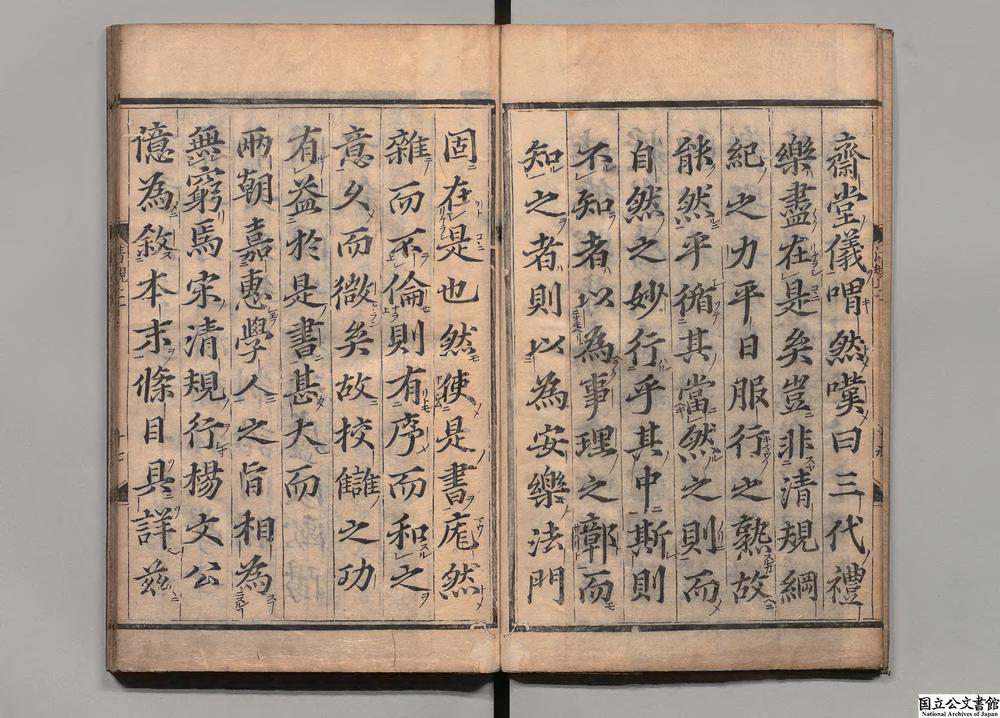 齋堂儀喟然嘆曰三代禮
樂盡在是矣豈非清規綱
紀之力平日服行之熟故
能然乎循其當然之則而
自然之妙行乎其中斯則
不知者以為事理之鄣而
知之者則以為安樂法門
固在是也然使是書庬然
雜而不倫則有序而和之
意久而微矣故校讎之功
有益於是書甚大而
兩朝嘉惠學人之旨相為
無窮焉宋清規行楊文公
億為敘本末條目具詳茲
国立公文書館
National Archives of Japan